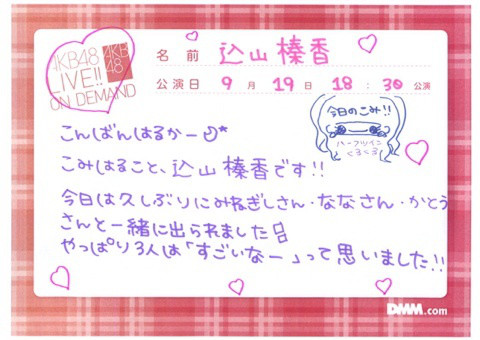 AKB48
LIVE!!
ON DEMAND
AKB
48
名前 込山榛香
公演日 9月19日 18:30公演
今日のこみ!!
ハーフツイン
くるくる
こんばんはるかー
こみはること、込山榛香です!!
今日は久しぶりにみねぎしさん・ななさん・かとう
さんと一緒に出られました
やっぱり3人は「すごいなー」って思いました!!
DMM.com